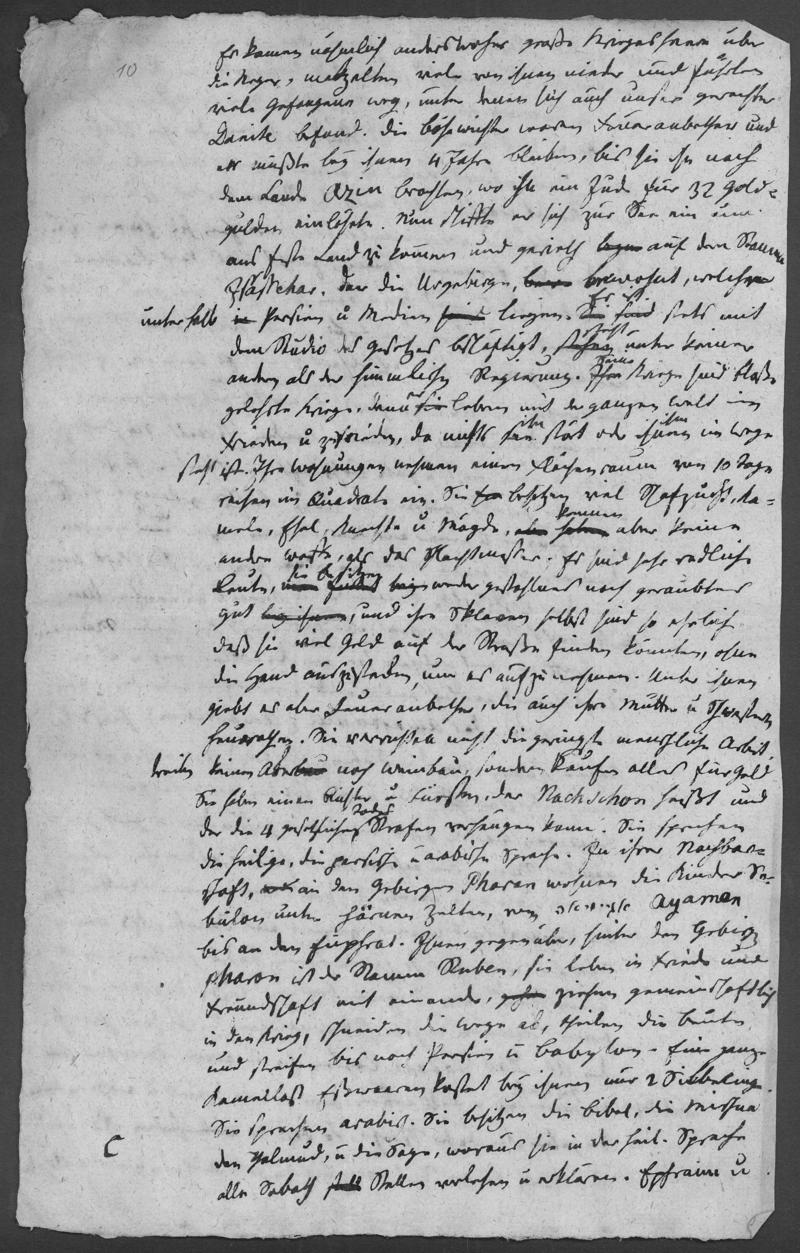 10
Es kamen nähmlich anderswoher große Kriegesheere über
die Neger, metzelten viele von ihnen nieder und führten
viele Gefangene weg, unter denen sich auch unser gerechter
Danite befand. Die Bösewichter waren Feueranbether und
er mußte bey ihnen 4 Jahre bleiben, bis sie ihn nach
dem Lande Azin brachten, wo ihn ein Jude für 32 Gold=
gulden einlösete. Nun schiffte er sich zur See ein um
ans feste Land zu kommen und gerieth auf den Stamm
Isaschar, der die Urgebirge, bewohnt, welche
unterhalb Persien u Medien liegen. Er ist stets mit
dem Studio des Gesetzes beschäftigt, steht unter keiner
andern als der himmlischen Regierung. Seine Kriege sind bloße
gelehrte Kriege, denn er lebt mit der ganzen Welt in
Frieden u zufrieden, da nichts ihn stört oder ihm im Wege
steht ist. Ihre Wohnungen nehmen einen Flächenraum von 10 Tage
reisen im Quadrate ein. Sie besitzen viel Schafzucht, Ka=
mele, Esel, Knechte u Mägde, kennen aber keine
andre Waffe, als das Schlachtmesser. Es sind sehr redliche
Leute, sie besitzen weder gestohlnes noch geraubtes
Gut, und ihre Sklaven selbst sind so ehrlich
daß sie viel Geld auf der Straße finden könnten, ohne
die Hand auszustrecken, um es aufzunehmen. Unter ihnen
giebt es aber Feueranbether, die auch ihre Mütter u Schwestern
heurathen. Sie verrichten nicht die geringste menschliche Arbeit
treiben keinen Ackerbau noch Weinbau, sondern kaufen alles für Geld
Sie haben einen Richter u Fürsten, der Nachschon heißt und
der die 4 gesetzlichen Todes Strafen verhängen kann. Sie sprechen
die heilige, die persische u arabische Sprache. In ihrer Nachbar=
schaft, an den Gebirgen Pharan wohnen die Kinder Se=
bulon unter härenen Zelten, von Ayamen
bis an den Euphrat. Ihnen gegenüber, hinter den Gebirg
Pharan ist der Stamm Ruben, sie leben in Friede und
Freundschaft mit einander, ziehen gemeinschaftlich
in den Krieg, schneiden die Wege ab, theilen die Beute
und streifen bis nach Persien u Babylon. Eine ganze
Kamellast Eßwaaren kostet bey ihnen nur 2 Silberling.
Sie sprechen arabisch. Sie besitzen die Bibel, die Mischna
den Thalmud, u die Sage, woraus sie in der heil. Sprache
alle Sabath Stellen vorlesen u erklären. Ephraim u
C